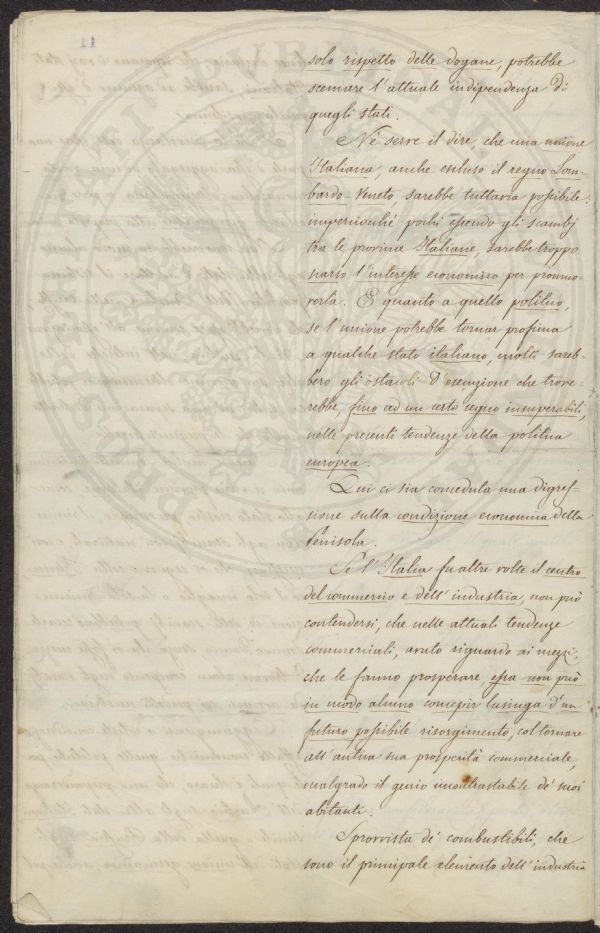 11
solo rispetto delle dogane, potrebbe
scemare l'attuale indipendenza di
quegli stati.
Nè serve il dire, che una unione
Italiana, anche escluso il regno Lom-
bardo-Veneto, sarebbe tuttavia possibile:
imperciocché pochi essendo gli scambj
tra le provincie Italiane, sarebbe troppo
scarso l'interesse economico per promuo-
verla. E quanto a quello politico,
se l'unione potrebbe tornar proficua
a qualche stato italiano, molti sareb-
bero gli ostacoli d'esecuzione che trove-
rebbe, fino ad un certo segno insuperabili,
nelle presenti tendenze della politica
europea.
Qui ci sia conceduta una digres-
sione sulla condizione economica della
Penisola.
Se l'Italia fu altre volte il centro
del commercio e dell'industria, non può
contendersi, che nelle attuali tendenze
commerciali, avuto riguardo ai mezzi
che le fanno prosperare, essa non può
in modo alcuno concepir lusinga d'un
futuro possibile risorgimento, col tornare
all'antica sua prosperità commerciale,
malgrado il genio incontrastabile de' suoi
abitanti.
Sprovvista de' combustibili, che
sono il principale elemento dell'industria